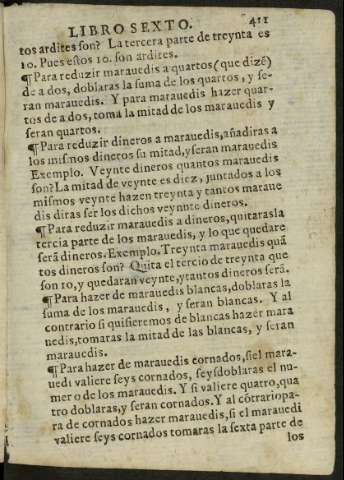 LIBRO SEXTO. 411
tos ardites son? La tercera parte de treynta es
10. Pues estos 10. son ardites.
¶ Para reduzir marauedis a quartos (que dizē)
de a dos, doblaras la suma de los quartos, y se-
ran marauedis. Y para marauedis hazer quar-
tos de a dos, toma la mitad de los marauedis y
seran quartos.
¶ Para reduzir dineros a marauedis, añadiras a
los mismos dineros su mitad, y seran marauedis
Exemplo. Veynte dineros quantos marauedis
son? La mitad de veynte es diez, juntados a los
mismos veynte hazen treynta y tantos maraue
dis diras ser los dichos veynte dineros.
¶ Para reduzir marauedis a dineros, quitarasla
tercia parte de los marauedis, y lo que quedare
será dineros. Exemplo. Treynta marauedis quā
tos dineros son? Quita el tercio de treynta que
son 10, y quedaran veynte, y tantos dineros serā.
¶ Para hazer de marauedis blancas, doblaras la
suma de los marauedis, y seran blancas. Y al
contrario si quisieremos de blancas hazer mara
uedis, tomaras la mitad de las blancas, y seran
marauedis.
¶ Para hazer de marauedis cornados, si el mara-
uedi valiere seys cornados, seysdoblaras el nu-
mero de los marauedis. Y si valiere quatro, qua
tro doblaras, y seran cornados. Y al cōtrario pa-
ra de cornados hazer marauedis, si el marauedi
valiere seys cornados tomaras la sexta parte de
los